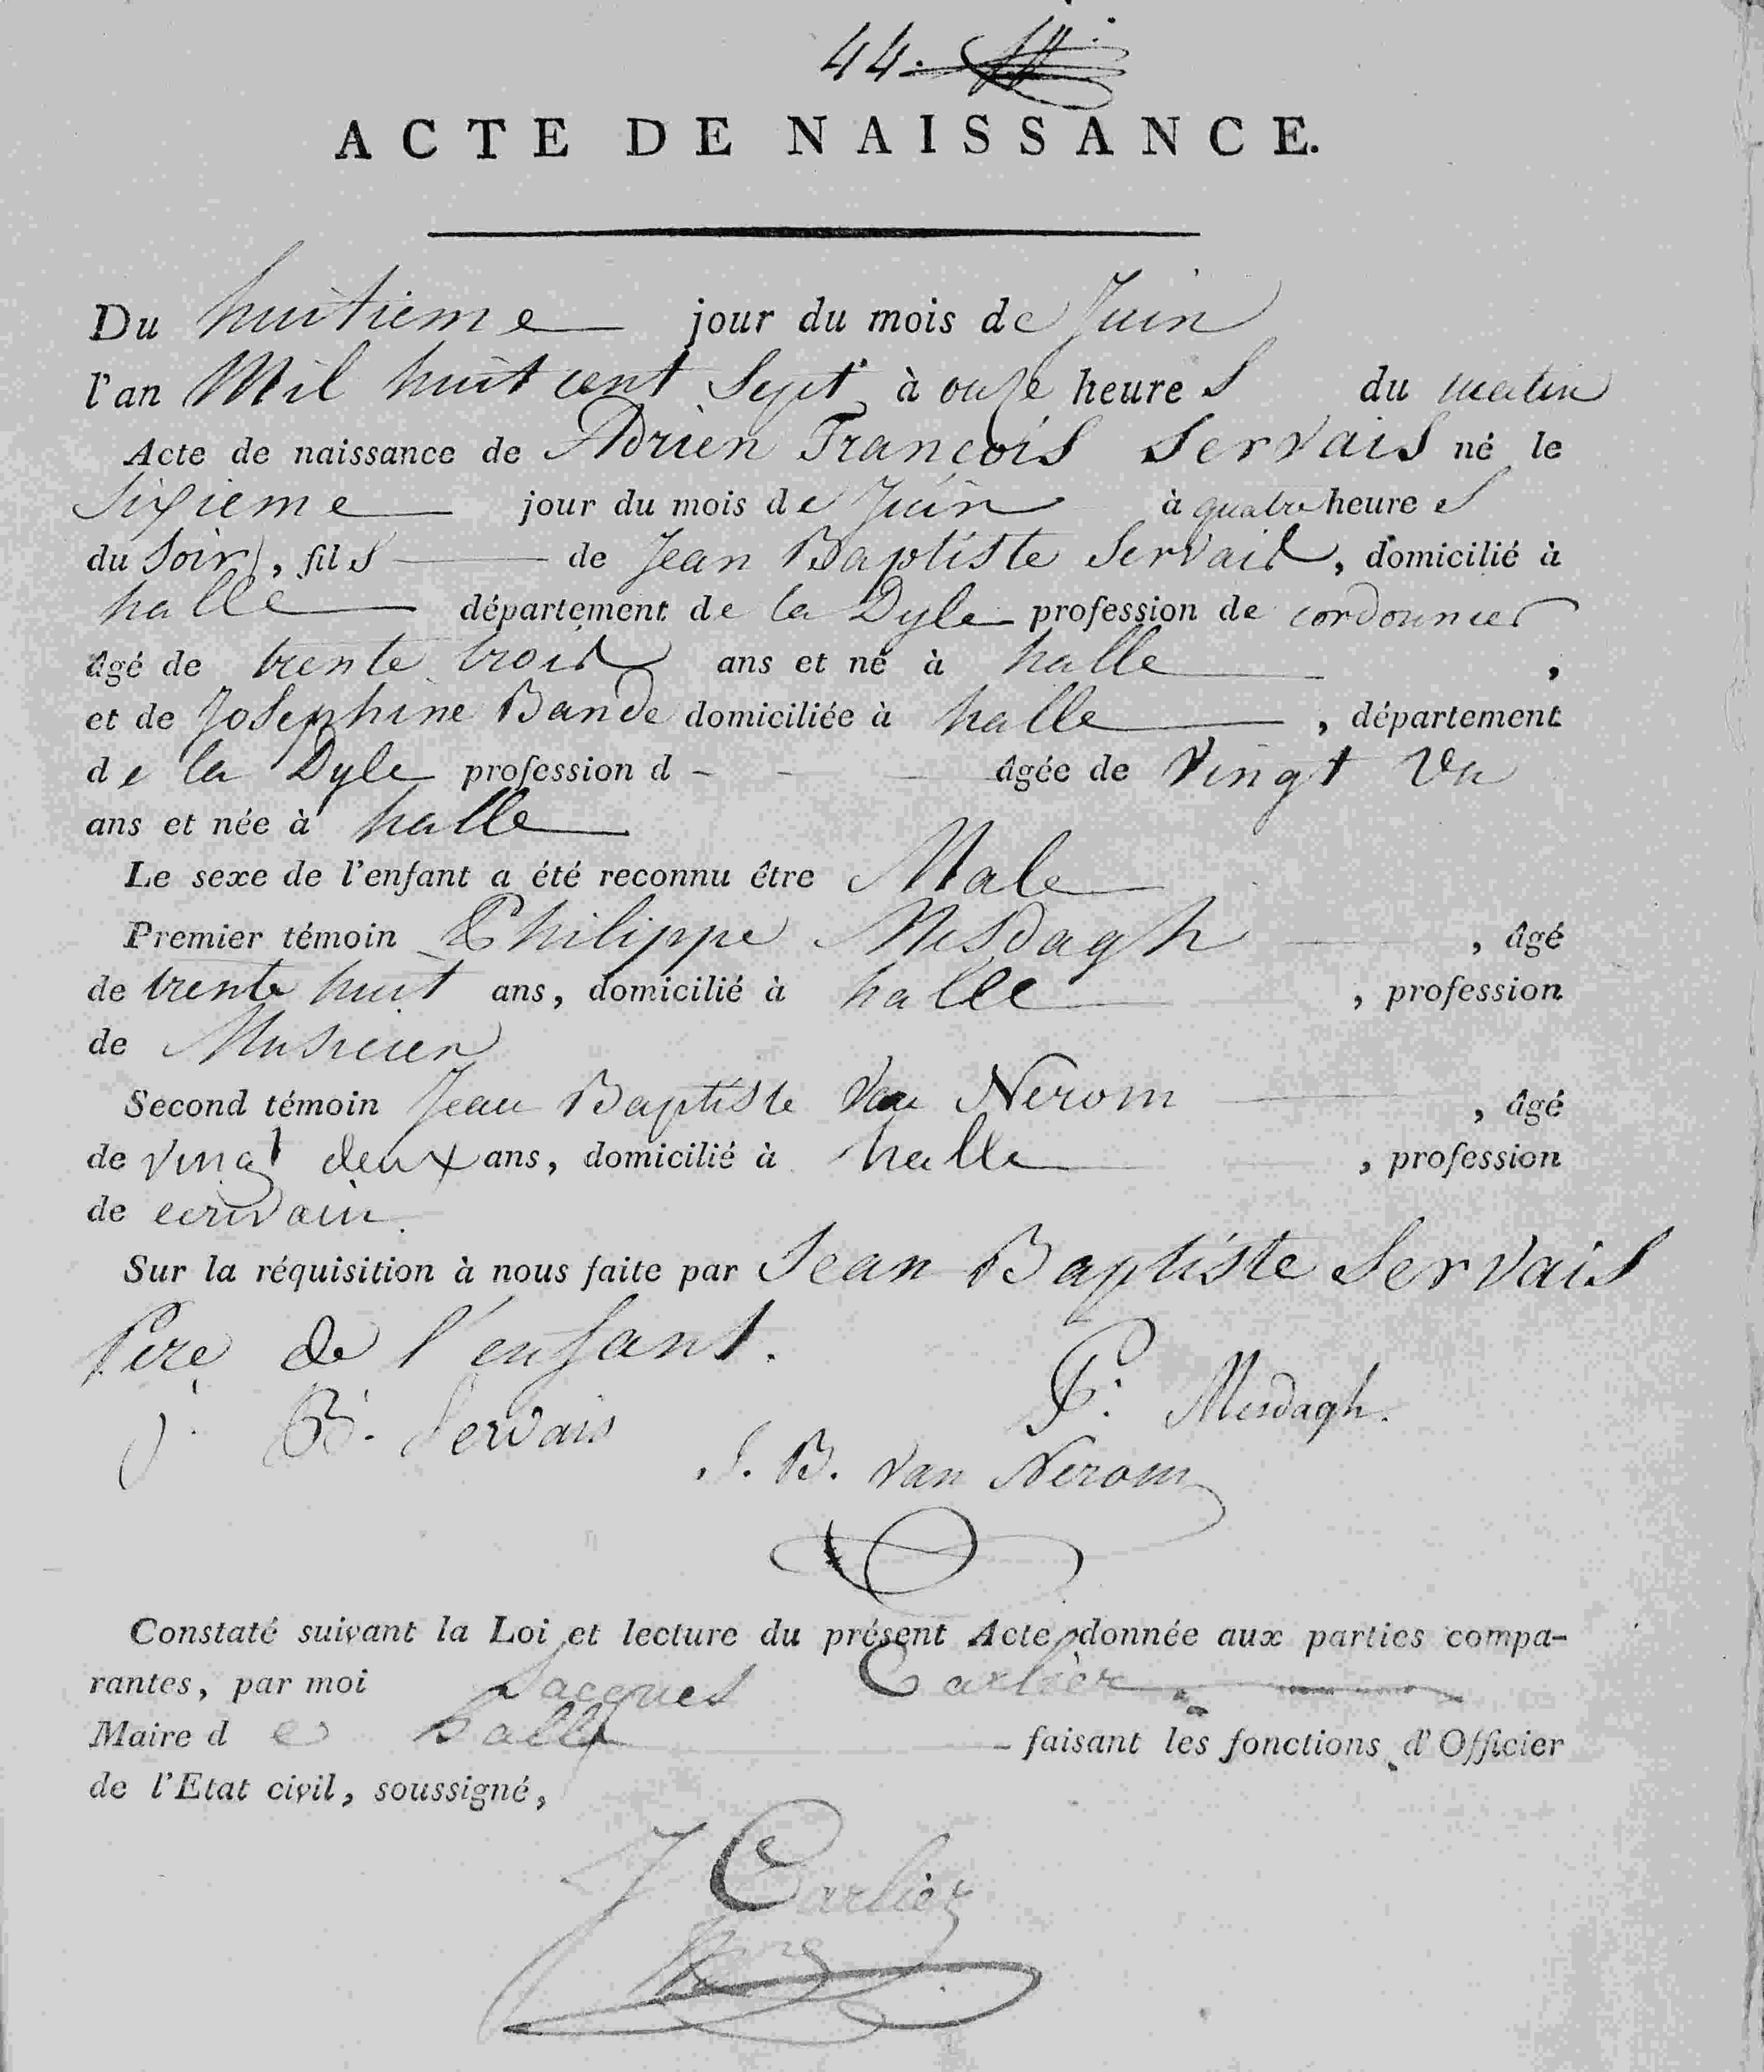 44.
ACTE DE NAISSANCE.
Du huitieme jour du mois de Juin
l'an Mil huit cent Sept à onze heures du matin
Acte de naissance de Adrien François Servais né le
Sixieme jour du mois de Juin à quatre heures
du Soir, fils de Jean Baptiste Servais, domicilié à
halle département de la Dyle profession de cordonnier
âgé de trente trois ans et né à halle ,
et de Josephine Bande domiciliée à halle , département
de la Dyle profession d - - âgée de Vingt Un
ans et née à halle
Le sexe de l'enfant a été reconnu être Male
Premier témoin Philippe Mesdagh , âgé
de trente huit ans, domicilié à halle , profession
de Musicien
Second témoin Jean Baptiste Van Nerom , âgé
de vingt deux ans, domicilié à halle , profession
de ecrivain.
Sur la réquisition à nous faite par Jean Baptiste Servais
Pere de l'enfant.
P. Mesdagh.
J. B. Servais
J. B. Van Nerom
Constaté suivant la Loi et lecture du présent Acte donnée aux parties compa-
rantes, par moi Jacques Carlier
Maire de halle faisant les fonctions d'Officier
de l'Etat civil, soussigné,
J Carlier